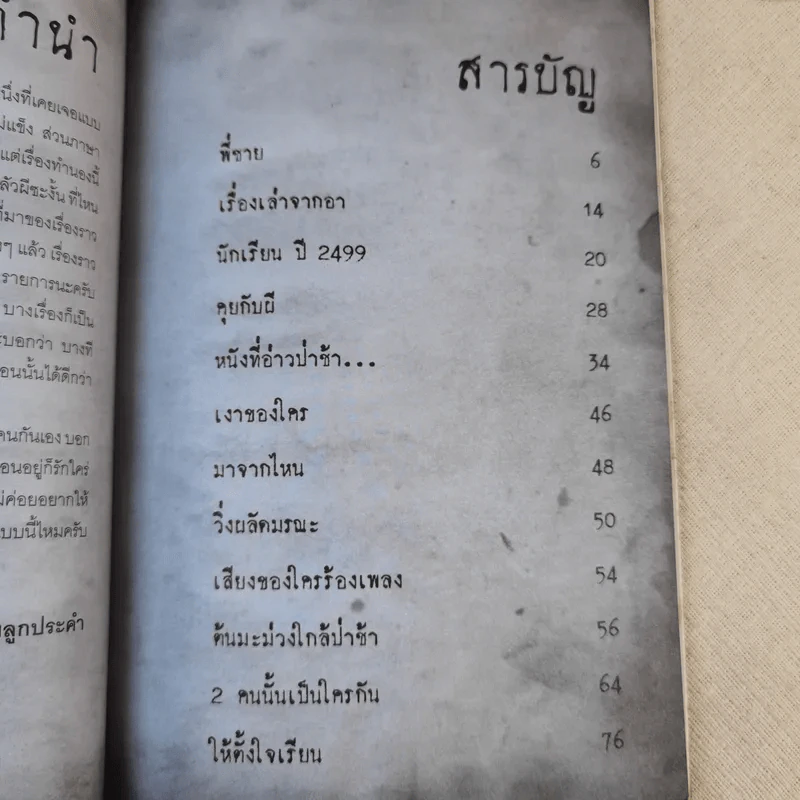 คำนำ
นึ่งที่เคยเจอแบบ
ม่แข็ง ส่วนภาษา
แต่เรื่องทำนองนี้
ลัวผีซะงั้น ที่ไหน
ที่มาของเรื่องราว
ๆ แล้ว เรื่องราว
รายการนะครับ
บางเรื่องก็เป็น
ะบอกว่า บางที
อนนั้นได้ดีกว่า
คนกันเอง บอก
อนอยู่ก็รักใคร่
ม่ค่อยอยากให้
แบบนี้ไหมครับ
ลูกประคำ
สารบัญ
พี่ชาย 6
เรื่องเล่าจากอา 14
นักเรียน ปี 2499 20
คุยกับผี 28
หนังที่อ่าวป่าช้า... 34
เงาของใคร 46
มาจากไหน 48
วิ่งผลัดมรณะ 50
เสียงของใครร้องเพลง 54
ต้นมะม่วงใกล้ป่าช้า 56
2 คนนั้นเป็นใครกัน 64
ให้ตั้งใจเรียน 76